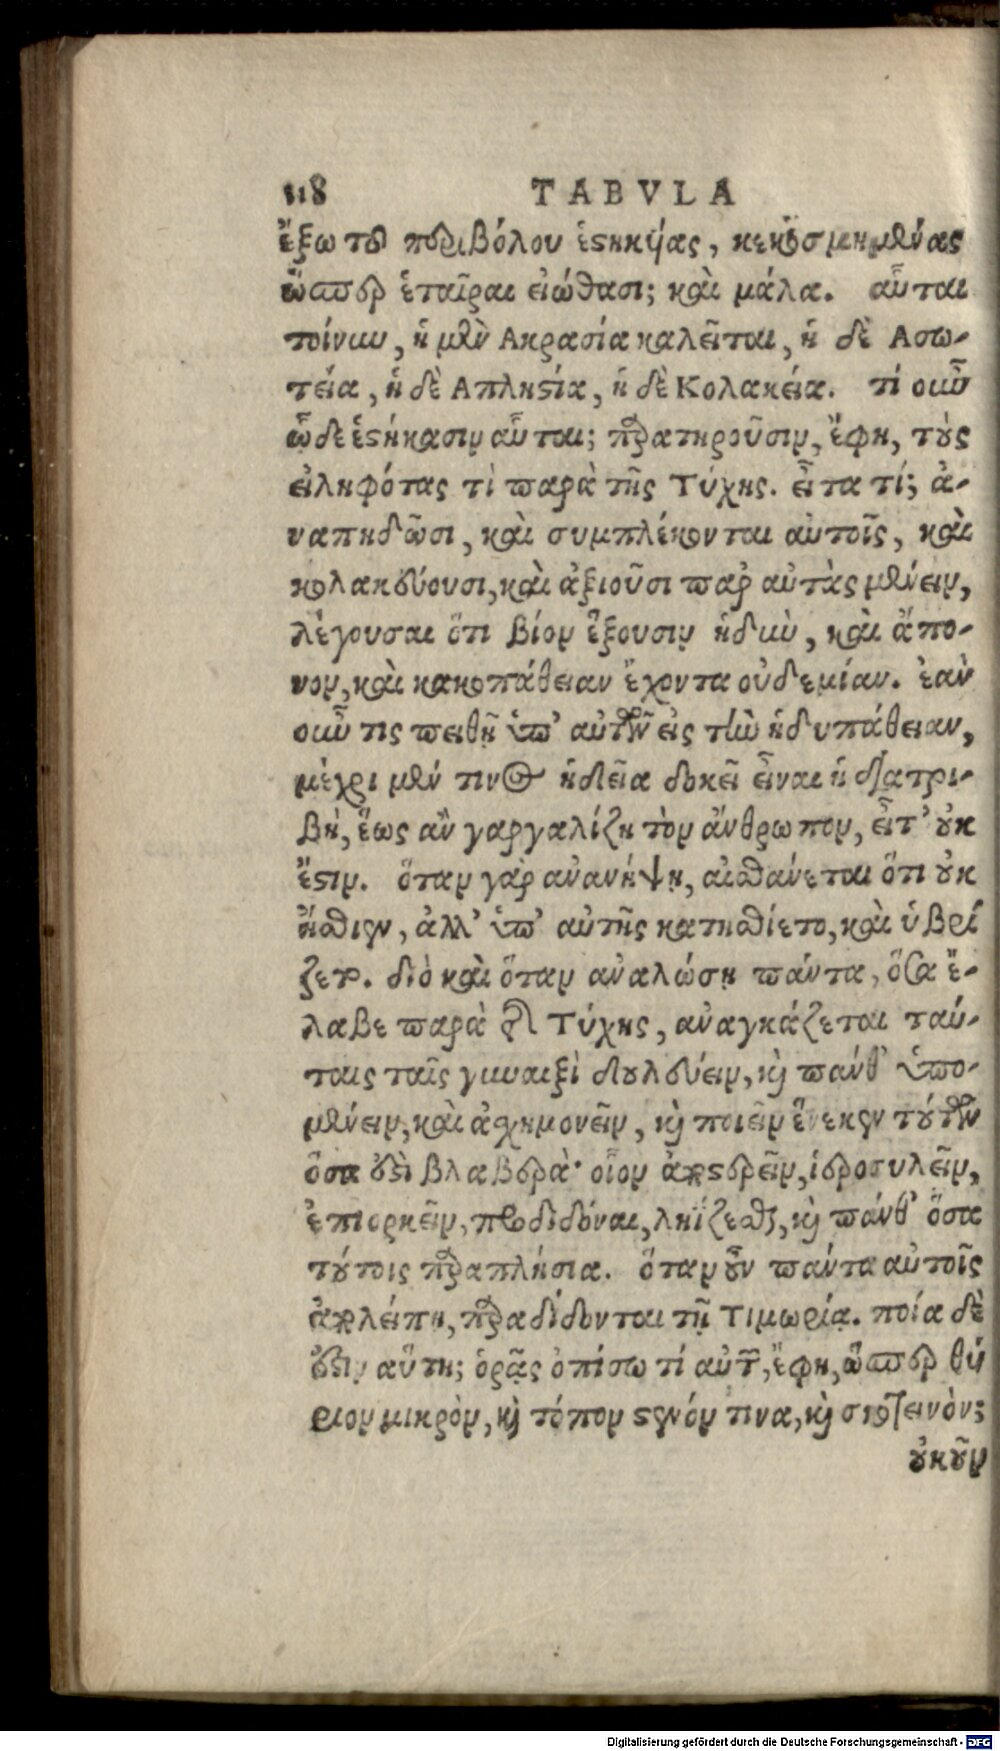 118 TABVLA
ἔξω τοῦ περιβόλου ἑστηκυίας, κεκοσμημένας
ὥσπερ ἑταῖραι εἰώθασι; καὶ μάλα. αὗται
τοίνυν, ἡ μὲν Ακρασία καλεῖται, ἡ δὲ Ασω-
τεία, ἡ δὲ Απληστία, ἡ δὲ Κολακεία. τί οὖν
ὧδε ἑστήκασιν αὗται; παρατηροῦσιν, ἔφη, τοὺς
εἰληφότας τὶ παρὰ τῆς Τύχης. εἶτα τί; ἀ-
ναπηδῶσι, καὶ συμπλέκονται αὐτοῖς, καὶ
κολακεύουσι, καὶ ἀξιοῦσι παρ αὐτὰς μένειν,
λέγουσαι ὅτι βίον ἕξουσιν ἡδιὺ, καὶ ἄπο-
νον, καὶ κακοπάθειαν ἔχοντα οὐδεμίαν. ἐὰν
οὖν τις πειθῇ ὑπ' αὐτῶν εἰς τὴν ἡδυπάθειαν,
μέχρι μέν τινος ἡδεῖα δοκεῖ εἶναι ἡ διατρι-
βὴ, ἕως ἂν γαργαλίζῃ τὸν ἄνθρωπον, εἶτ' οὐκ
ἔστιν. ὅταν γὰρ ἀνανήψῃ, αἰσθάνεται ὅτι οὐκ
ἤσθιεν, ἀλλ' ὑπ' αὐτῆς κατησθίετο, καὶ ὑβρί
ζετο. διὸ καὶ ὅταν ἀναλώσῃ πάντα, ὅσα ἔ-
λαβε παρὰ τῆς Τύχης, ἀναγκάζεται ταύ-
ταις ταῖς γυναιξὶ δουλεύειν, καὶ πάνθ' ὑπο-
μένειν, καὶ ἀσχημονεῖν, καὶ ποιεῖν ἕνεκεν τούτων
ὅσα ἐστὶ βλαβερὰ· οἷον ἀποστερεῖν, ἱεροσυλεῖν,
ἐπιορκεῖν, προδιδόναι, ληΐζεσθαι, καὶ πάνθ' ὅσα
τούτοις παραπλήσια. ὅταν οὖν πάντα αὐτοῖς
ἐκλείπῃ, παραδίδονται τῇ Τιμωρίᾳ. ποία δὲ
ἐστιν αὕτη; ὁρᾷς ὀπίσω τί αὐτῶν, ἔφη, ὥσπερ θύ
ριον μικρὸν, καὶ τόπον στενόν τινα, καὶ σκοτεινὸν;
οὐκοῦν
Digitalisierung gefördert durch die Deutsche Forschungsgemeinschaft - DFG